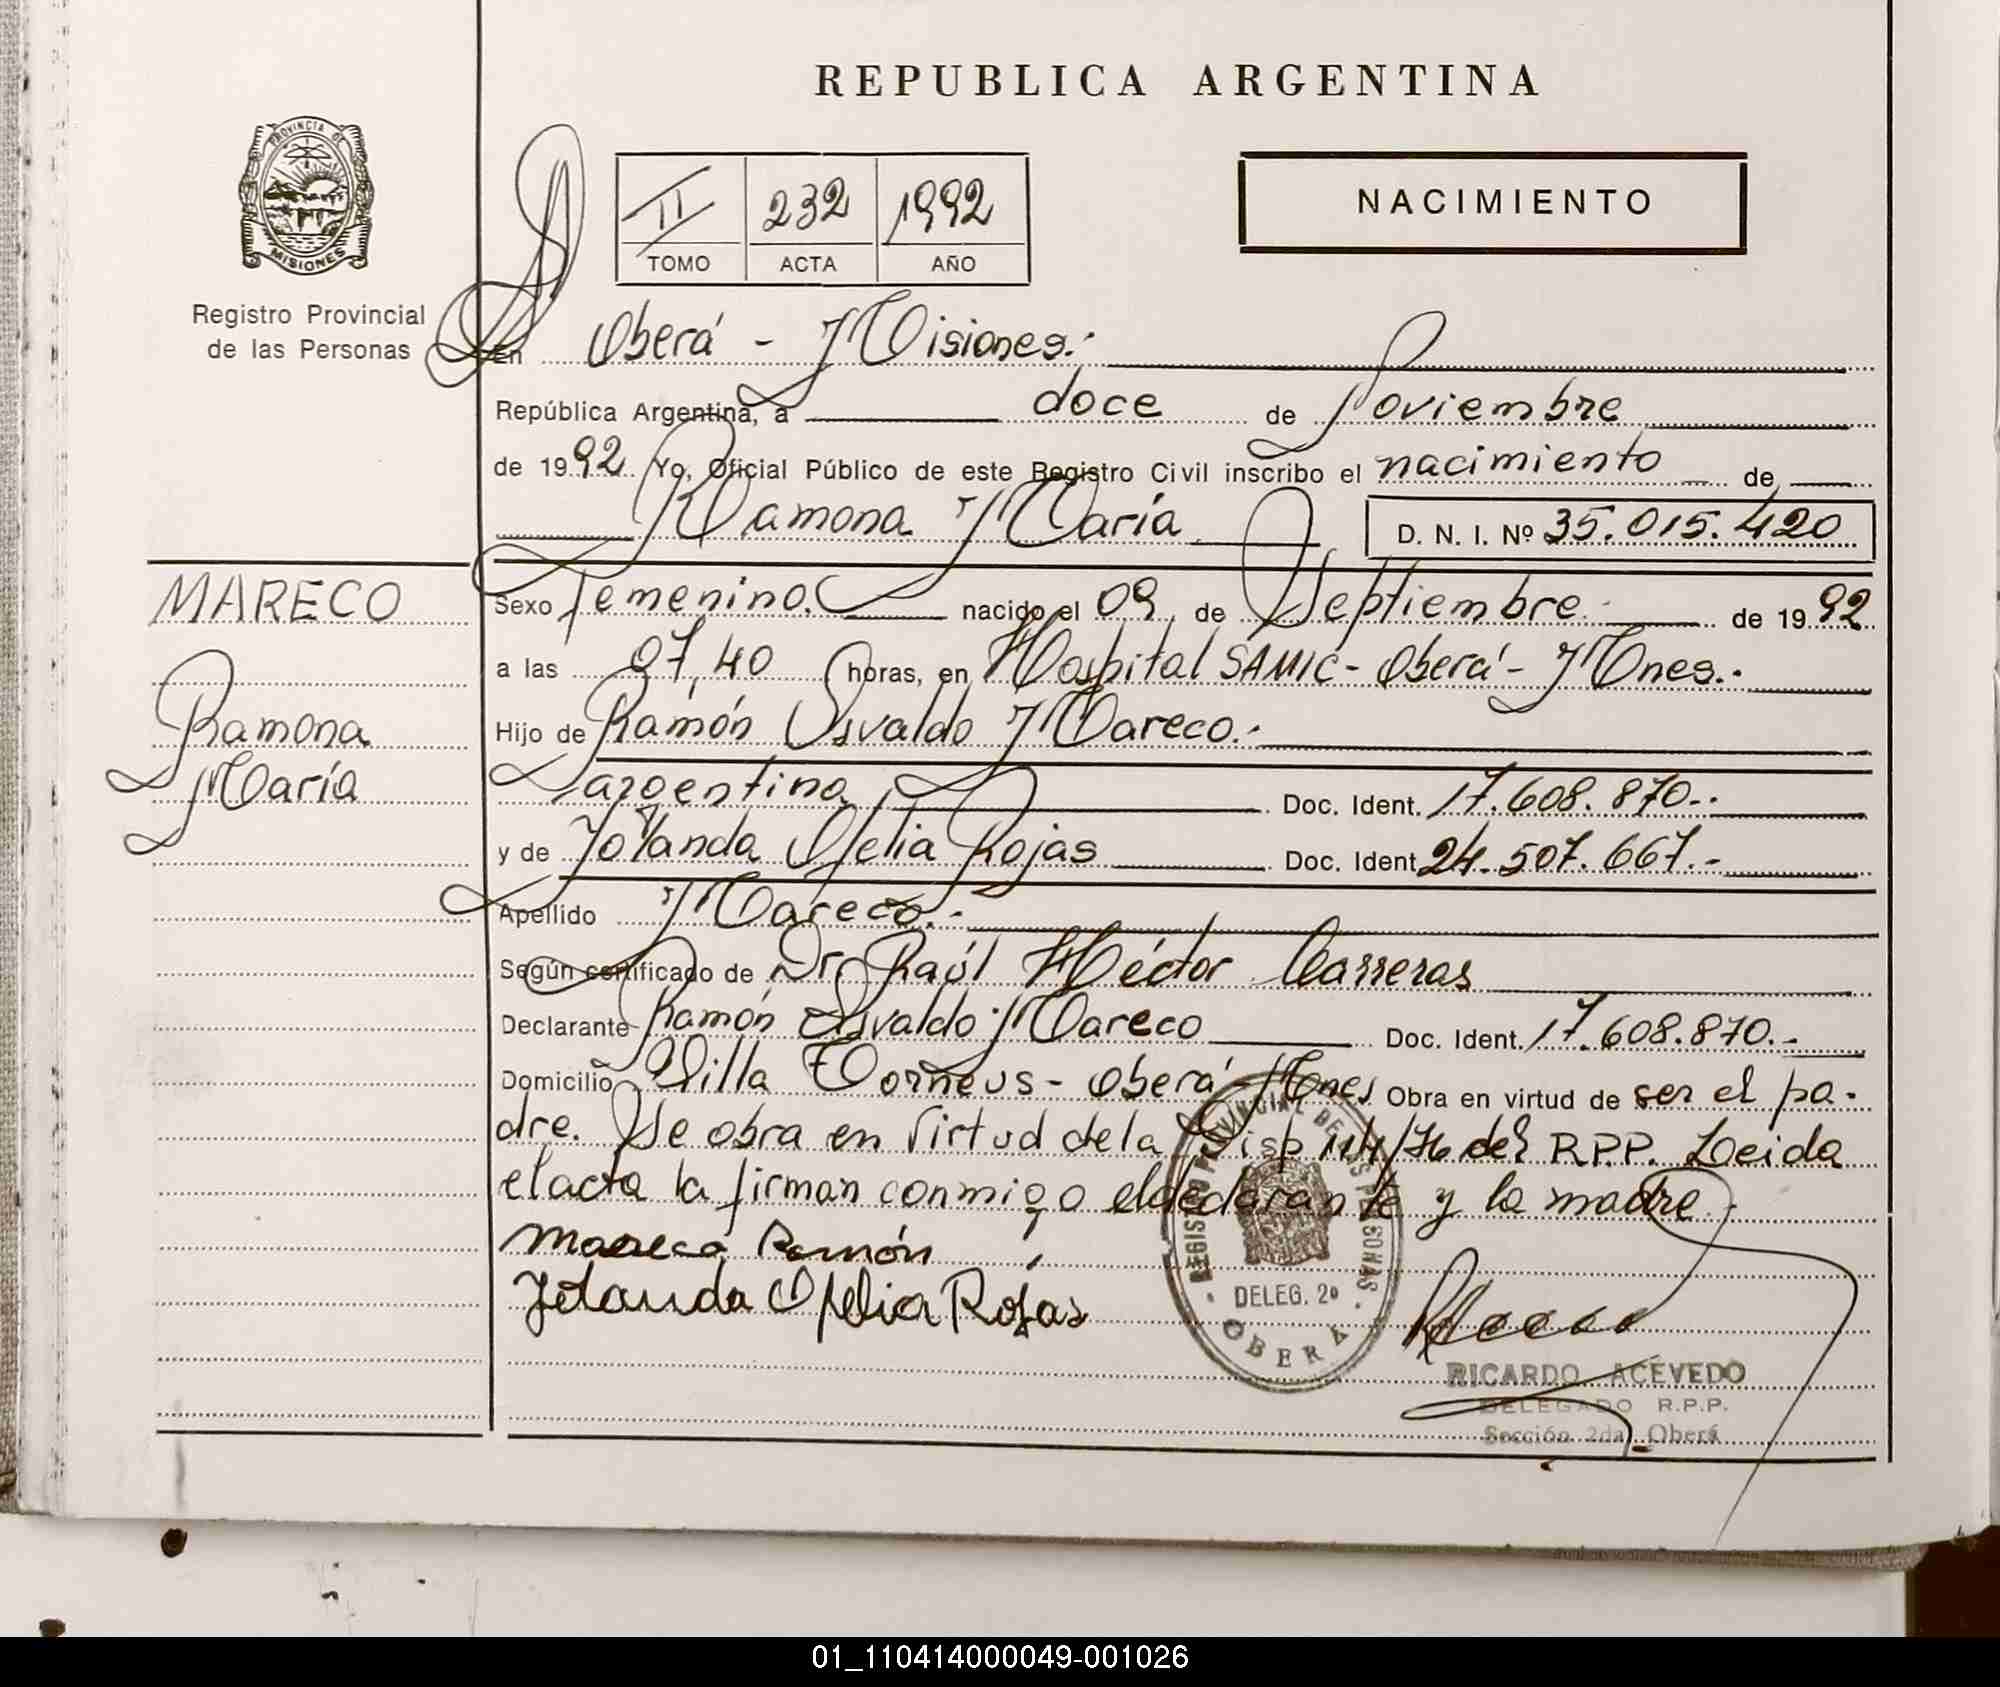 REPUBLICA ARGENTINA
PROVINCIA DE
MISIONES
Registro Provincial
de las Personas
II 232 1992
TOMO ACTA AÑO
NACIMIENTO
En Oberá - Misiones.-
República Argentina, a doce de Noviembre
de 1992 Yo, Oficial Público de este Registro Civil inscribo el nacimiento de
Ramona María D. N. I. Nº 35.015.420
MARECO
Ramona
María
Sexo Femenino. nacido el 09 de Septiembre. de 1992
a las 07,40 horas, en Hospital SAMIC - Oberá - Mnes.-
Hijo de Ramón Osvaldo Mareco.-
argentina Doc. Ident. 17.608.870.-
y de Yolanda Ofelia Rojas Doc. Ident. 24.507.667.-
Apellido Mareco.-
Según certificado de Dr. Raúl Héctor Carreras
Declarante Ramón Osvaldo Mareco Doc. Ident. 17.608.870.-
Domicilio Villa Torneus - Oberá - Mnes Obra en virtud de ser el pa-
dre. Se obra en virtud de la Disp 114/76 del R.P.P. Leida
el acta la firman conmigo el declarante y la madre.-
Mareco Ramón
Yolanda Ofelia Rojas
REGISTRO PROVINCIAL DE LAS PERSONAS
DELEG. 2º
OBERA
RICARDO ACEVEDO
DELEGADO R.P.P.
Sección 2da. Oberá
01_110414000049-001026